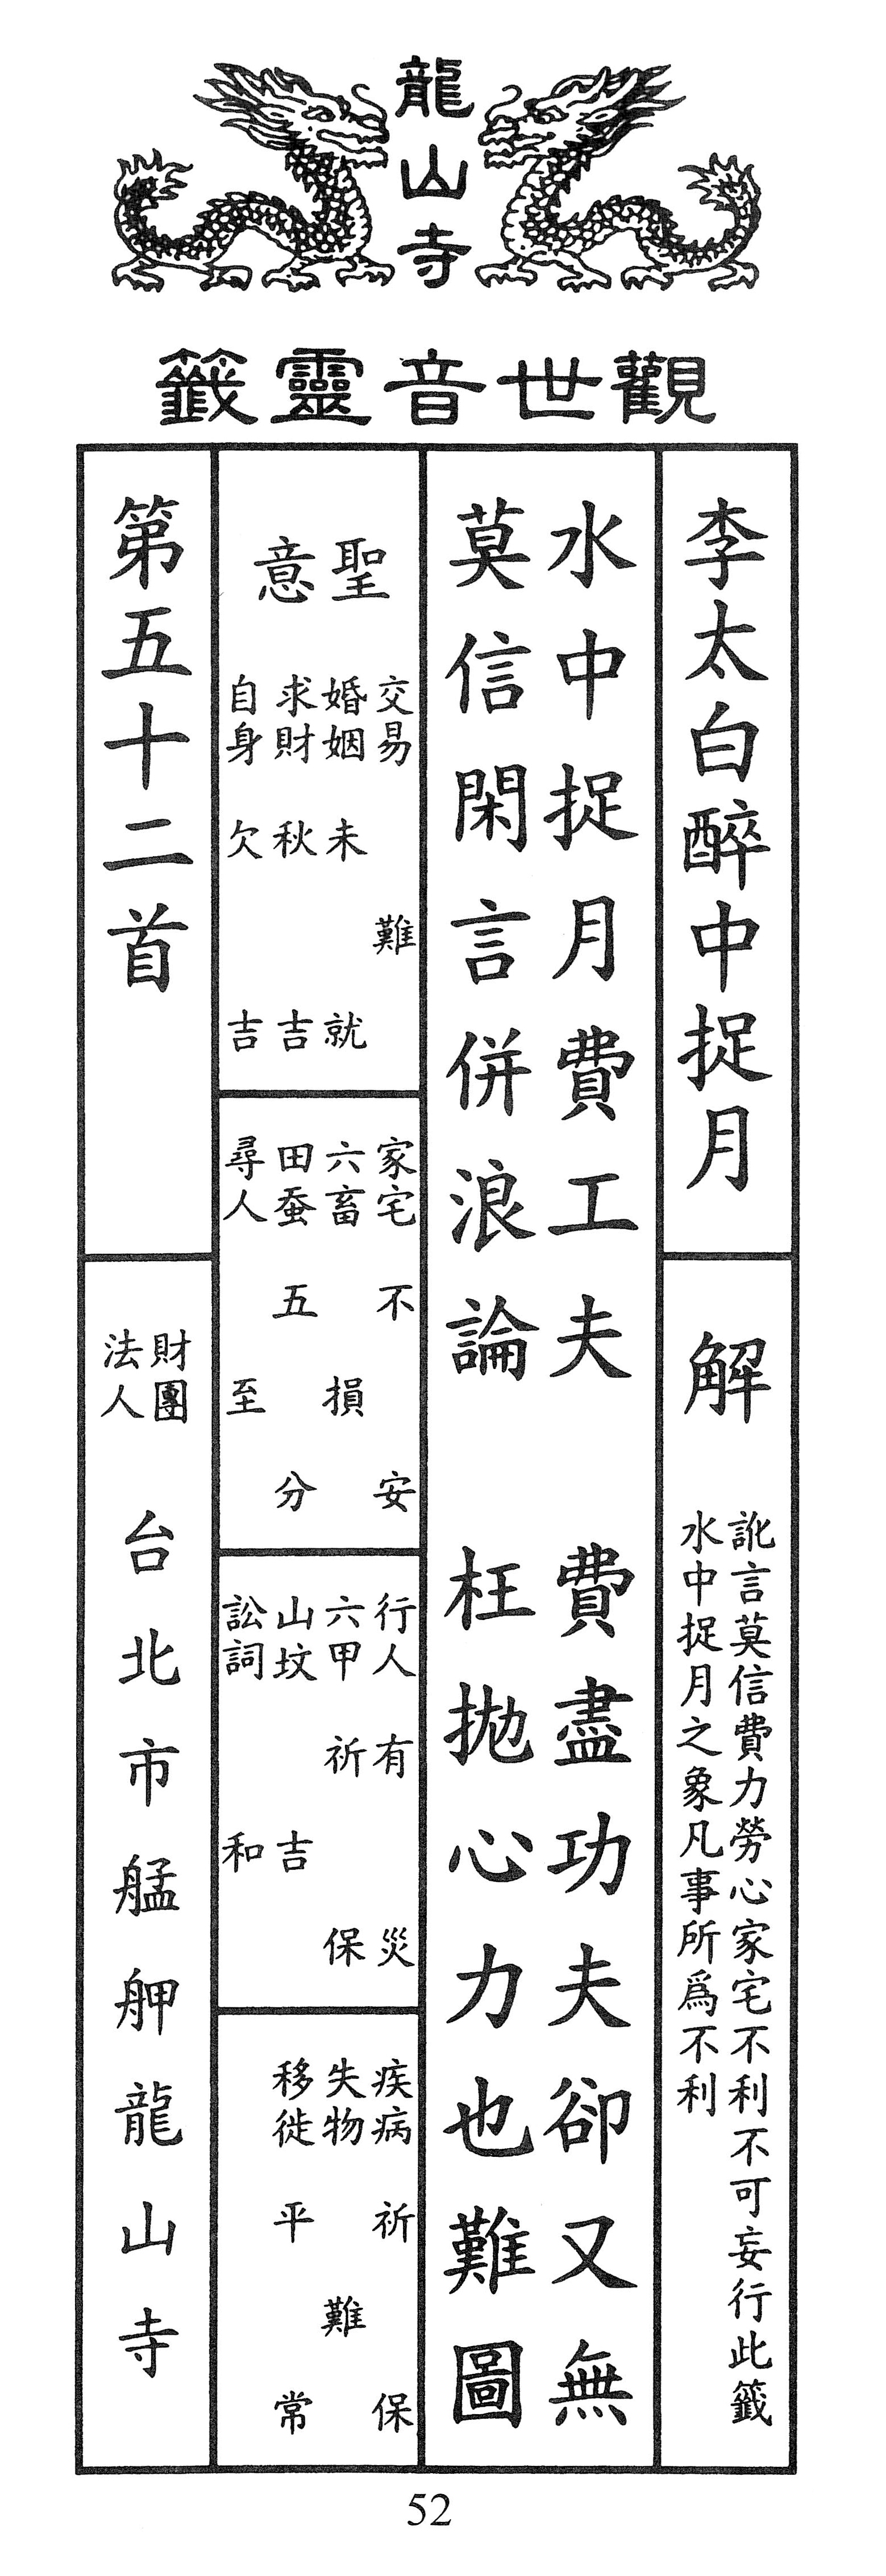 龍山寺
觀世音靈籤
李太白醉中捉月
解
訛言莫信費力勞心家宅不利不可妄行此籤
水中捉月之象凡事所為不利
水中捉月費工夫　費盡功夫卻又無
莫信閑言併浪論　枉拋心力也難圖
聖意
交易　難
婚姻　未就
求財　秋吉
自身　欠吉
家宅　不安
六畜　損
田蚕　五分
尋人　至
行人　有災
六甲　祈保
山坟　吉
訟詞　和
疾病　祈保
失物　難
移徙　平常
第五十二首
財團法人
台北市艋舺龍山寺
52